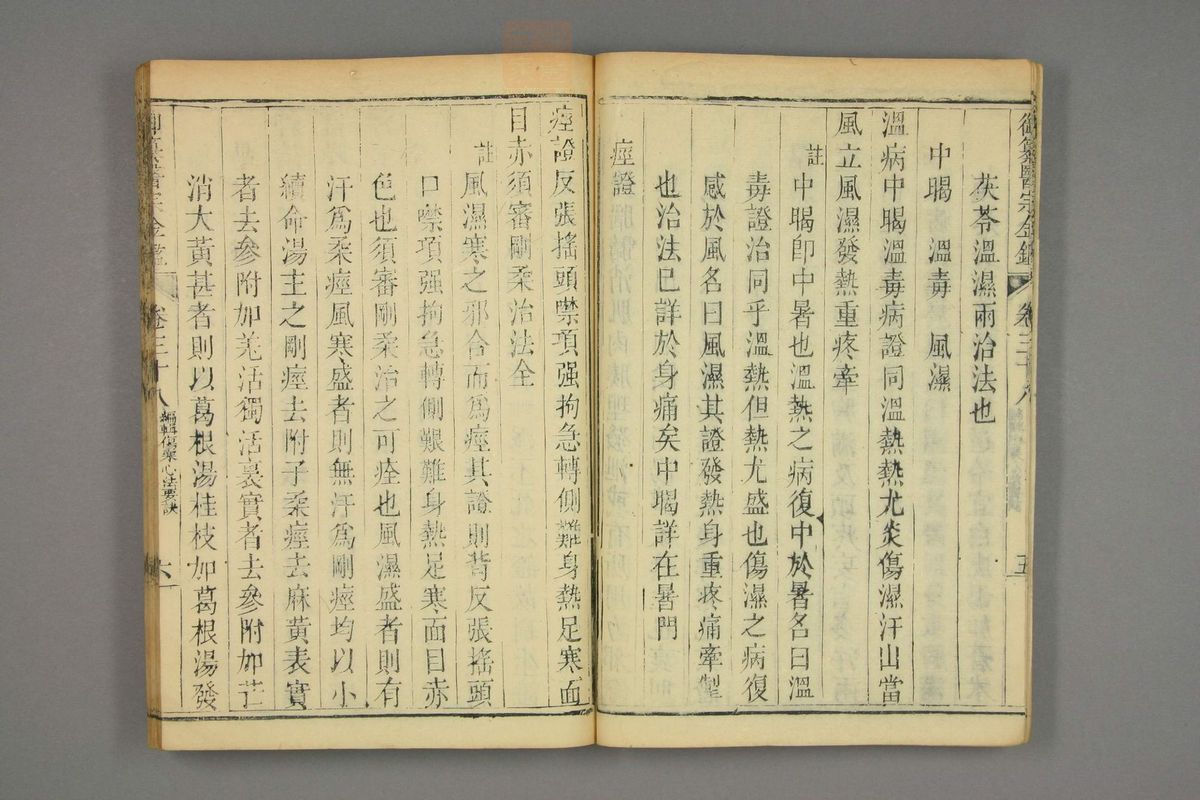 御纂醫宗金鑑 卷三十八 五
茯苓溫濕兩治法也
中暍 溫毒 風濕
溫病中暍溫毒病證同溫熱熱尤炎傷濕汗出當
風立風濕發熱重疼牽
註中暍即中暑也溫熱之病復中於暑名曰溫
毒證治同乎溫熱但熱尤盛也傷濕之病復
感於風名曰風濕其證發熱身重疼痛牽掣
也治法已詳於身痛矣中暍詳在暑門
痙證
痙證反張搖頭噤項强拘急轉側難身熱足寒面
目赤須審剛柔治法全
註風濕寒之邪合而爲痙其證則背反張搖頭
口噤項强拘急轉側艱難身熱足寒面目赤
色也須審剛柔治之可痊也風濕盛者則有
汗爲柔痙風寒盛者則無汗爲剛痙均以小
續命湯主之剛痙去附子柔痙去麻黃表實
者去參附加羌活獨活裏實者去參附加芒
消大黃甚者則以葛根湯桂枝加葛根湯發
御纂醫宗金鑑 卷三十八 編輯傷寒心法要訣 六